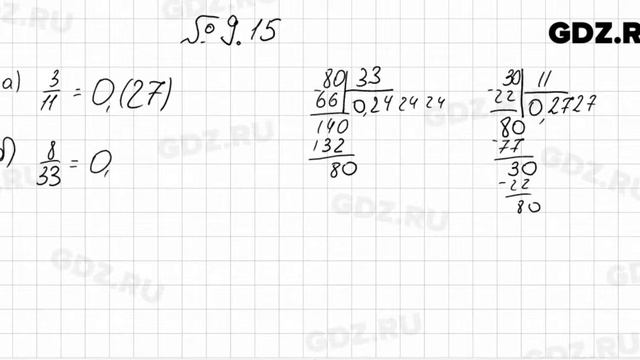 № 9.15
GDZ.RU
а) 3/11 = 0,(27)
б) 8/33 = 0,
80 | 33
-66 | 0,24 24 24
140
132
80
30 | 11
-22 | 0,2727
80
-77
30
-22
80
GDZ.RU
GDZ.RU
GDZ.RU
GDZ.RU
GDZ.RU
GDZ.RU